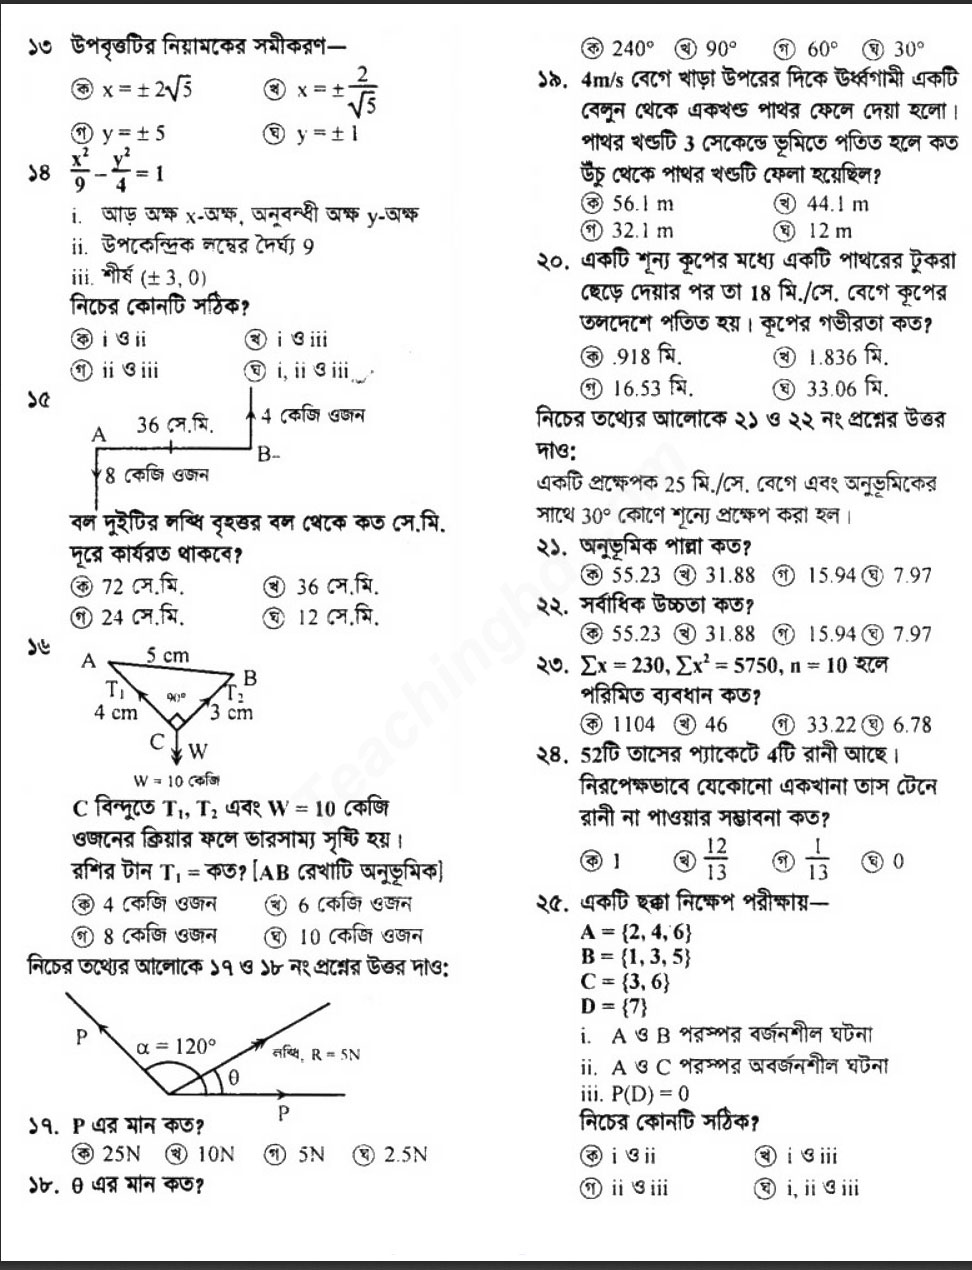 ১৩ উপবৃত্তটির নিয়ামকের সমীকরণ—
ক x = ± 2√5 খ x = ± 2/√5
গ y = ± 5 ঘ y = ± 1
১৪ x²/9 − y²/4 = 1
i. আড় অক্ষ x-অক্ষ, অনুবন্ধী অক্ষ y-অক্ষ
ii. উপকেন্দ্রিক লম্বের দৈর্ঘ্য 9
iii. শীর্ষ (± 3, 0)
নিচের কোনটি সঠিক?
ক i ও ii খ i ও iii
গ ii ও iii ঘ i, ii ও iii
১৫
36 সে.মি. 4 কেজি ওজন
A B
8 কেজি ওজন
বল দুইটির লব্ধি বৃহত্তর বল থেকে কত সে.মি.
দূরে কার্যরত থাকবে?
ক 72 সে.মি. খ 36 সে.মি.
গ 24 সে.মি. ঘ 12 সে.মি.
১৬
A 5 cm B
T₁ 90° T₂
4 cm 3 cm
C W
W = 10 কেজি
C বিন্দুতে T₁, T₂ এবং W = 10 কেজি
ওজনের ক্রিয়ার ফলে ভারসাম্য সৃষ্টি হয়।
রশির টান T₁ = কত? [AB রেখাটি অনুভূমিক]
ক 4 কেজি ওজন খ 6 কেজি ওজন
গ 8 কেজি ওজন ঘ 10 কেজি ওজন
নিচের তথ্যের আলোকে ১৭ ও ১৮ নং প্রশ্নের উত্তর দাও:
P α = 120° লব্ধি, R = 5N
θ
P
১৭. P এর মান কত?
ক 25N খ 10N গ 5N ঘ 2.5N
১৮. θ এর মান কত?
ক 240° খ 90° গ 60° ঘ 30°
১৯. 4m/s বেগে খাড়া উপরের দিকে ঊর্ধ্বগামী একটি
বেলুন থেকে একখণ্ড পাথর ফেলে দেয়া হলো।
পাথর খণ্ডটি 3 সেকেন্ডে ভূমিতে পতিত হলে কত
উঁচু থেকে পাথর খণ্ডটি ফেলা হয়েছিল?
ক 56.1 m খ 44.1 m
গ 32.1 m ঘ 12 m
২০. একটি শূন্য কূপের মধ্যে একটি পাথরের টুকরা
ছেড়ে দেয়ার পর তা 18 মি./সে. বেগে কূপের
তলদেশে পতিত হয়। কূপের গভীরতা কত?
ক .918 মি. খ 1.836 মি.
গ 16.53 মি. ঘ 33.06 মি.
নিচের তথ্যের আলোকে ২১ ও ২২ নং প্রশ্নের উত্তর
দাও:
একটি প্রক্ষেপক 25 মি./সে. বেগে এবং অনুভূমিকের
সাথে 30° কোণে শূন্যে প্রক্ষেপ করা হল।
২১. অনুভূমিক পাল্লা কত?
ক 55.23 খ 31.88 গ 15.94 ঘ 7.97
২২. সর্বাধিক উচ্চতা কত?
ক 55.23 খ 31.88 গ 15.94 ঘ 7.97
২৩. ∑x = 230, ∑x² = 5750, n = 10 হলে
পরিমিত ব্যবধান কত?
ক 1104 খ 46 গ 33.22 ঘ 6.78
২৪. 52টি তাসের প্যাকেটে 4টি রানী আছে।
নিরপেক্ষভাবে যেকোনো একখানা তাস টেনে
রানী না পাওয়ার সম্ভাবনা কত?
ক 1 খ 12/13 গ 1/13 ঘ 0
২৫. একটি ছক্কা নিক্ষেপ পরীক্ষায়—
A = {2, 4, 6}
B = {1, 3, 5}
C = {3, 6}
D = {7}
i. A ও B পরস্পর বর্জনশীল ঘটনা
ii. A ও C পরস্পর অবর্জনশীল ঘটনা
iii. P(D) = 0
নিচের কোনটি সঠিক?
ক i ও ii খ i ও iii
গ ii ও iii ঘ i, ii ও iii